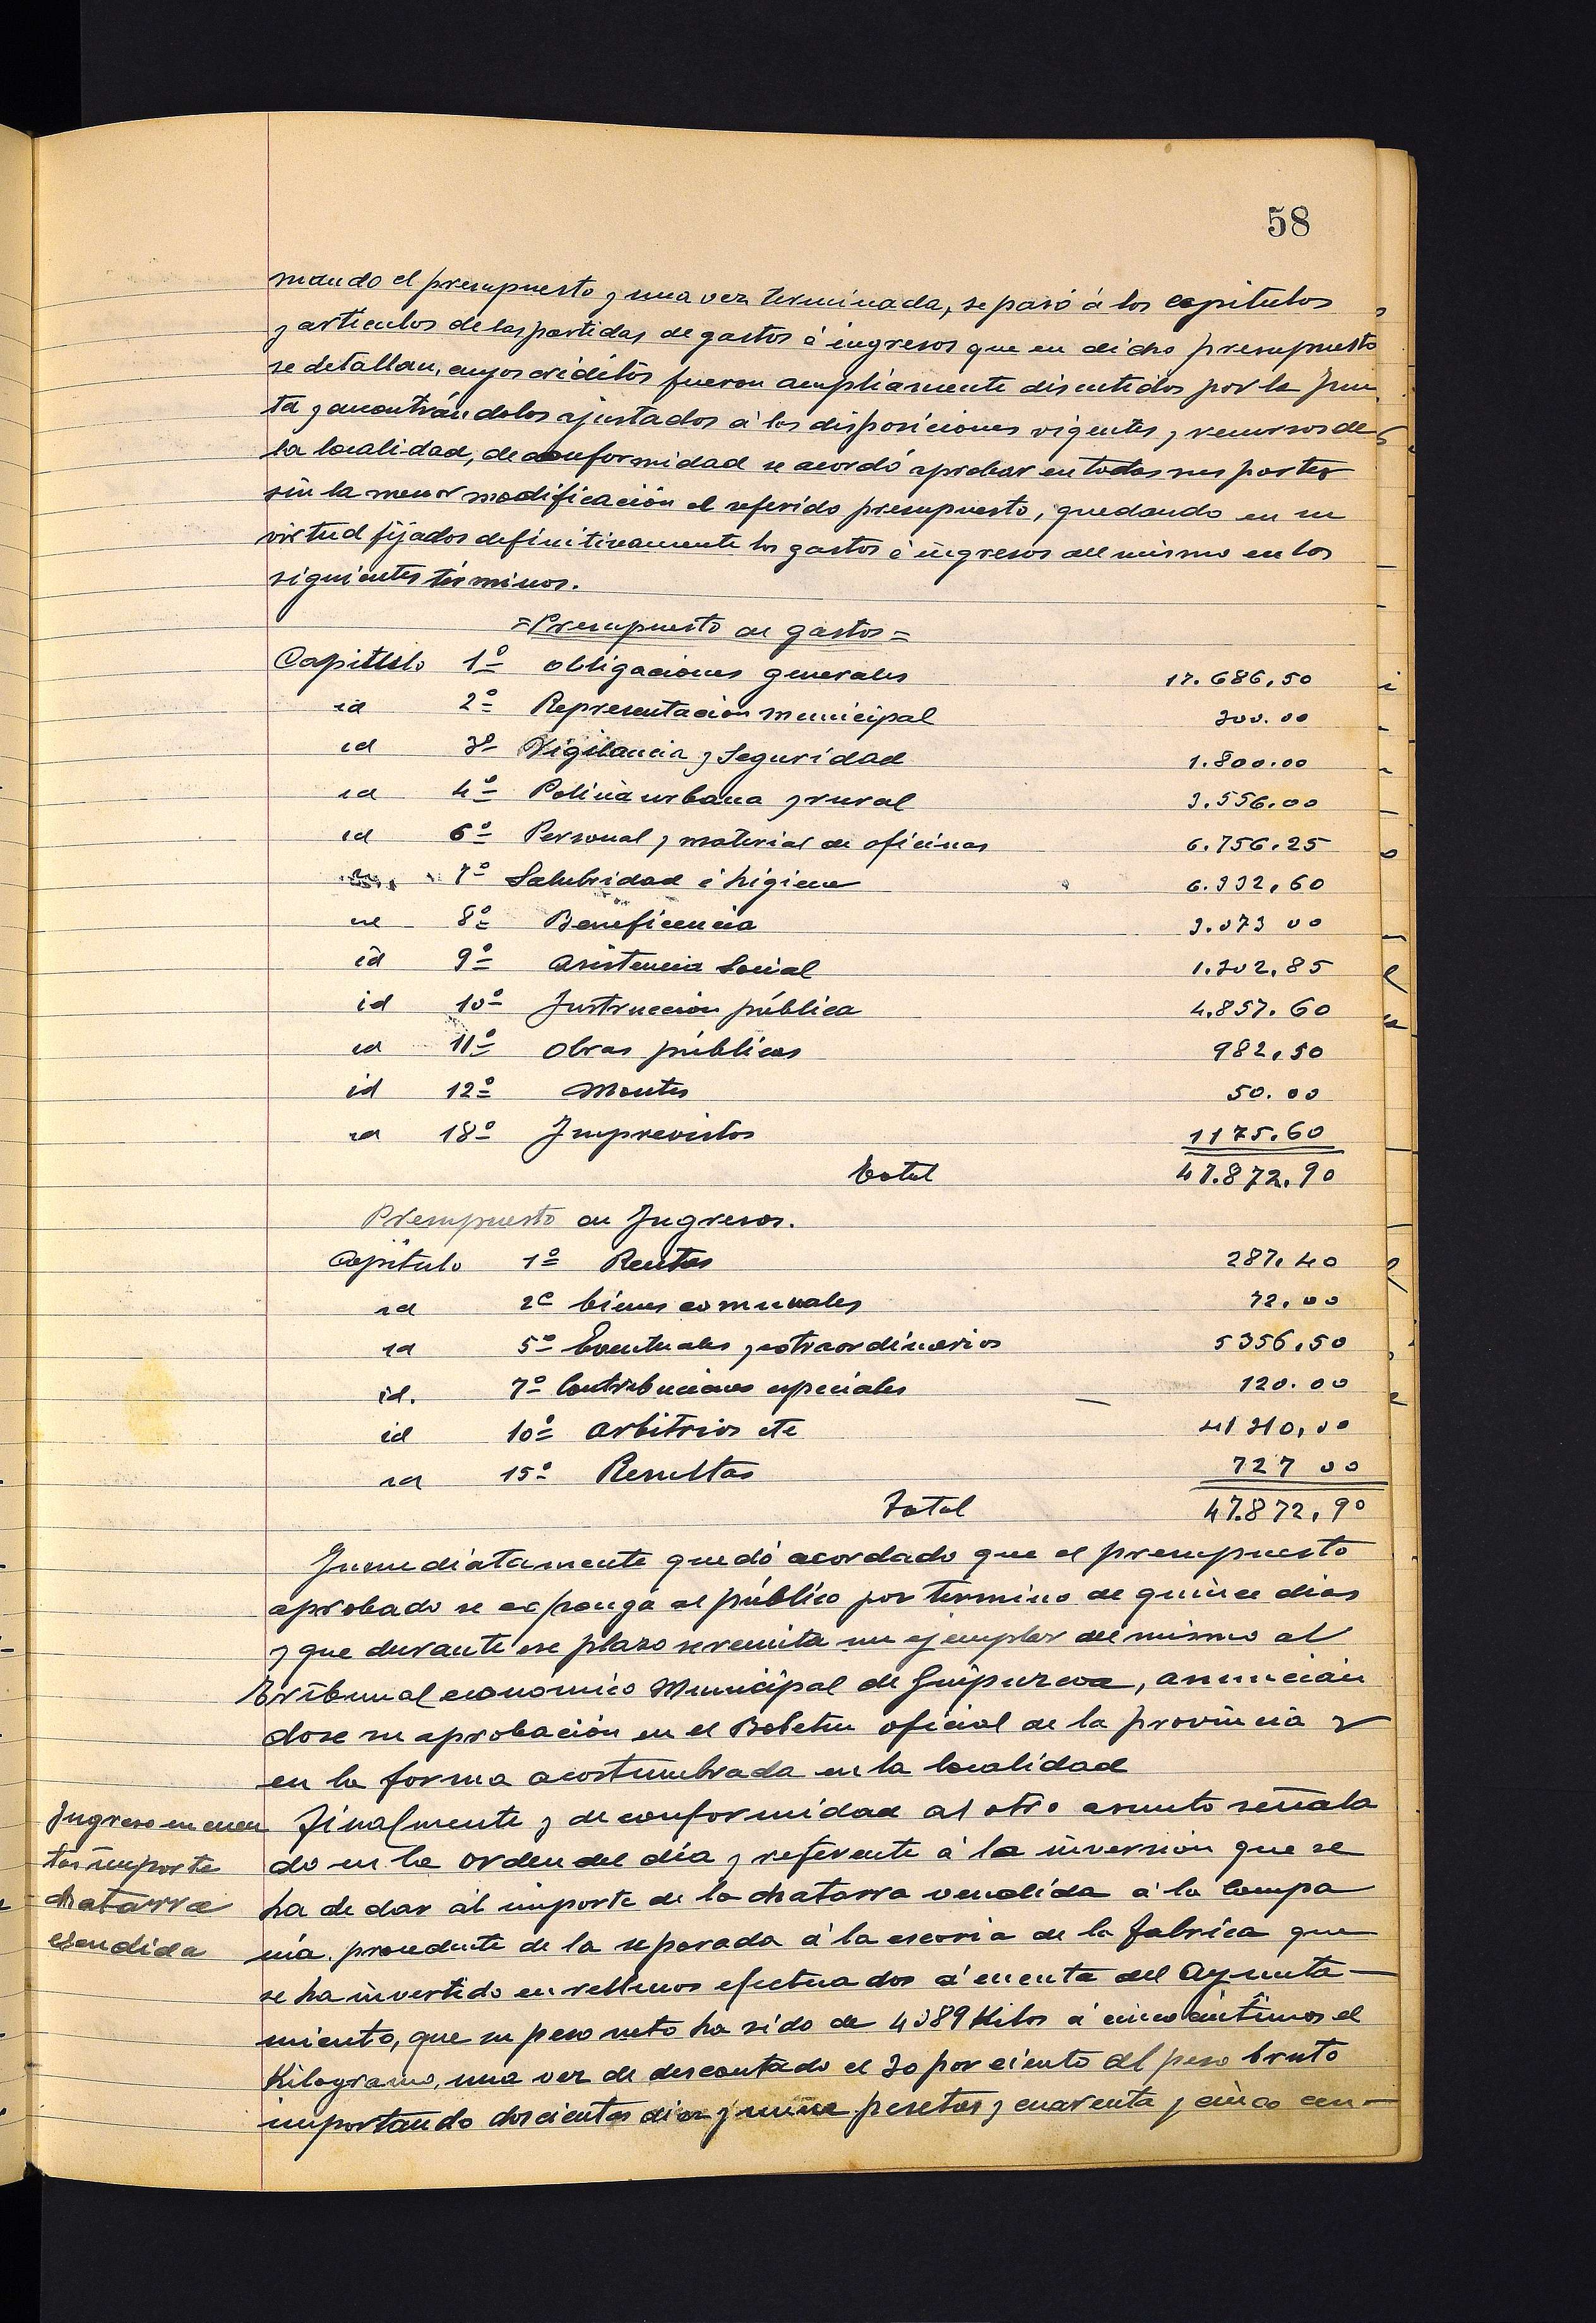 58
mando el presupuesto y una vez terminada, se pasó á los capítulos
y artículos de las partidas de gastos é ingresos que en dicho presupuesto
se detallan, cuyos créditos fueron ampliamente discutidos por la Jun
ta y encontrándolos ajustados á las disposiciones vigentes y recursos de
la localidad, de conformidad se acordó aprobar en todas sus partes
sin la menor modificación el referido presupuesto, quedando en su
virtud fijados definitivamente los gastos é ingresos del mismo en los
siguientes términos.
=Presupuesto de gastos=
Capítulo 1º obligaciones generales 17.686,50
id 2º Representación municipal 300.00
id 3º Vigilancia y Seguridad 1.800.00
id 4º Policia urbana y rural 3.556.00
id 6º Personal y material de oficinas 6.756.25
7º Salubridad é higiene 6.332,60
id 8º Beneficencia 3.073 00
id 9º Asistencia Social 1.302,85
id 10º Instrucción pública 4.857.60
id 11º Obras públicas 982,50
id 12º Montes 50.00
id 18º Imprevistos 1175.60
Total 47.872.90
Presupuesto de Ingresos.
Capítulo 1º Rentas 287.40
id 2º bienes comunales 72,00
id 5º Eventuales y extraordinarios 5356,50
id. 7º Contribuciones especiales 120.00
id 10º Arbitrios etc 41310,00
id 15º Resultas 727 00
Total 47.872,90
Inmediatamente quedó acordado que el presupuesto
aprobado se exponga al público por término de quince dias
y que durante ese plazo se remita un ejemplar del mismo al
Tribunal económico Municipal de Guipuzcoa, anuncián
dose su aprobación en el Boletin oficial de la provincia y
en la forma acostumbrada en la localidad
Ingreso en cuen
tas importe
chatarra
vendida
Finalmente y de conformidad al otro asunto señala
do en la orden del día y referente á la inversión que se
ha de dar al importe de la chatarra vendida á la Compa
ñia procedente de la separada á la escoria de la fabrica que
se ha invertido en rellenos efectuados á cuenta del Ayunta—
miento, que su peso neto ha sido de 4389 Kilos á cinco céntimos el
Kilogramo, una vez de descontado el 30 por ciento del peso bruto
importando doscientas diez y nueve pesetas y cuarenta y cinco cen—